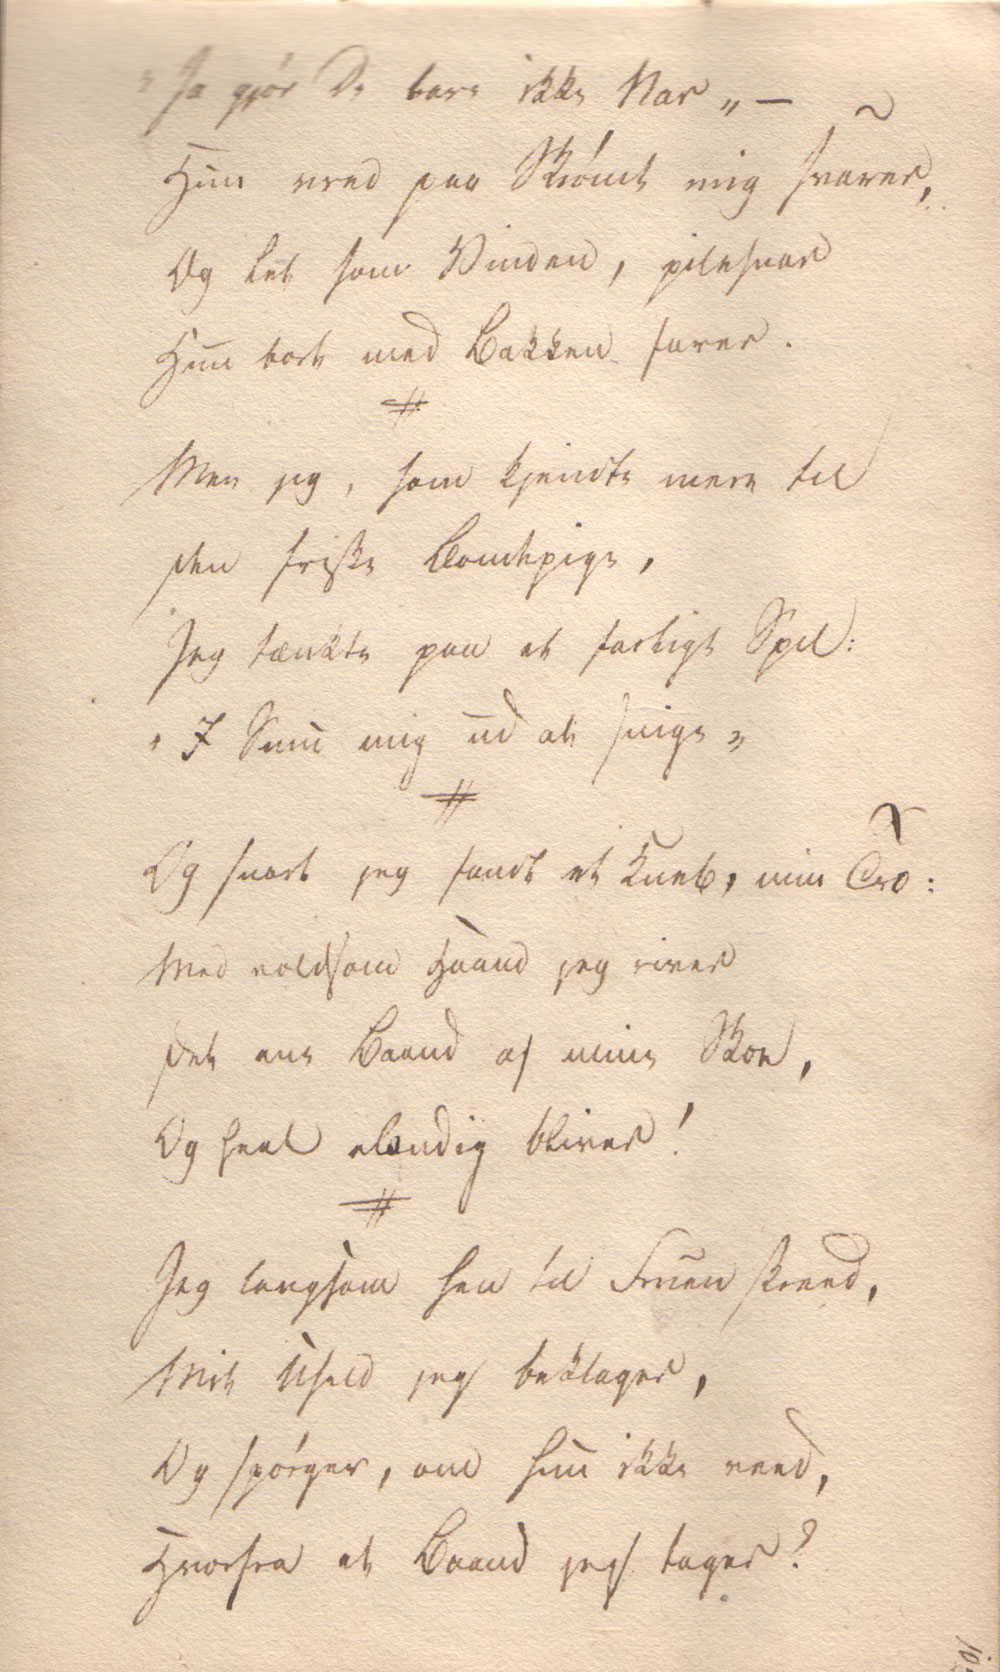 "Ja gjør De bare ikke Nar „ —
Hun vred paa Skjømt mig svarer,
Og let som Vinden, pilesnar
Hun bort med Bakken farer.
Men jeg, som kjendte mere til
den friske Bondepige,
Jeg tænkte paa et farligt Spil:
"I Smu mig ud at snige„
Og snart jeg fandt et Kneb, min Tro:
Med voldsom Haand jeg river
det ene Baand af mine Skoe,
Og heel elændig bliver!
Jeg langsom hen til Fruen skreed,
Mit Uheld jeg beklager,
Og spörger, om hun ikke veed,
Hvorfra et Baand jeg tager?